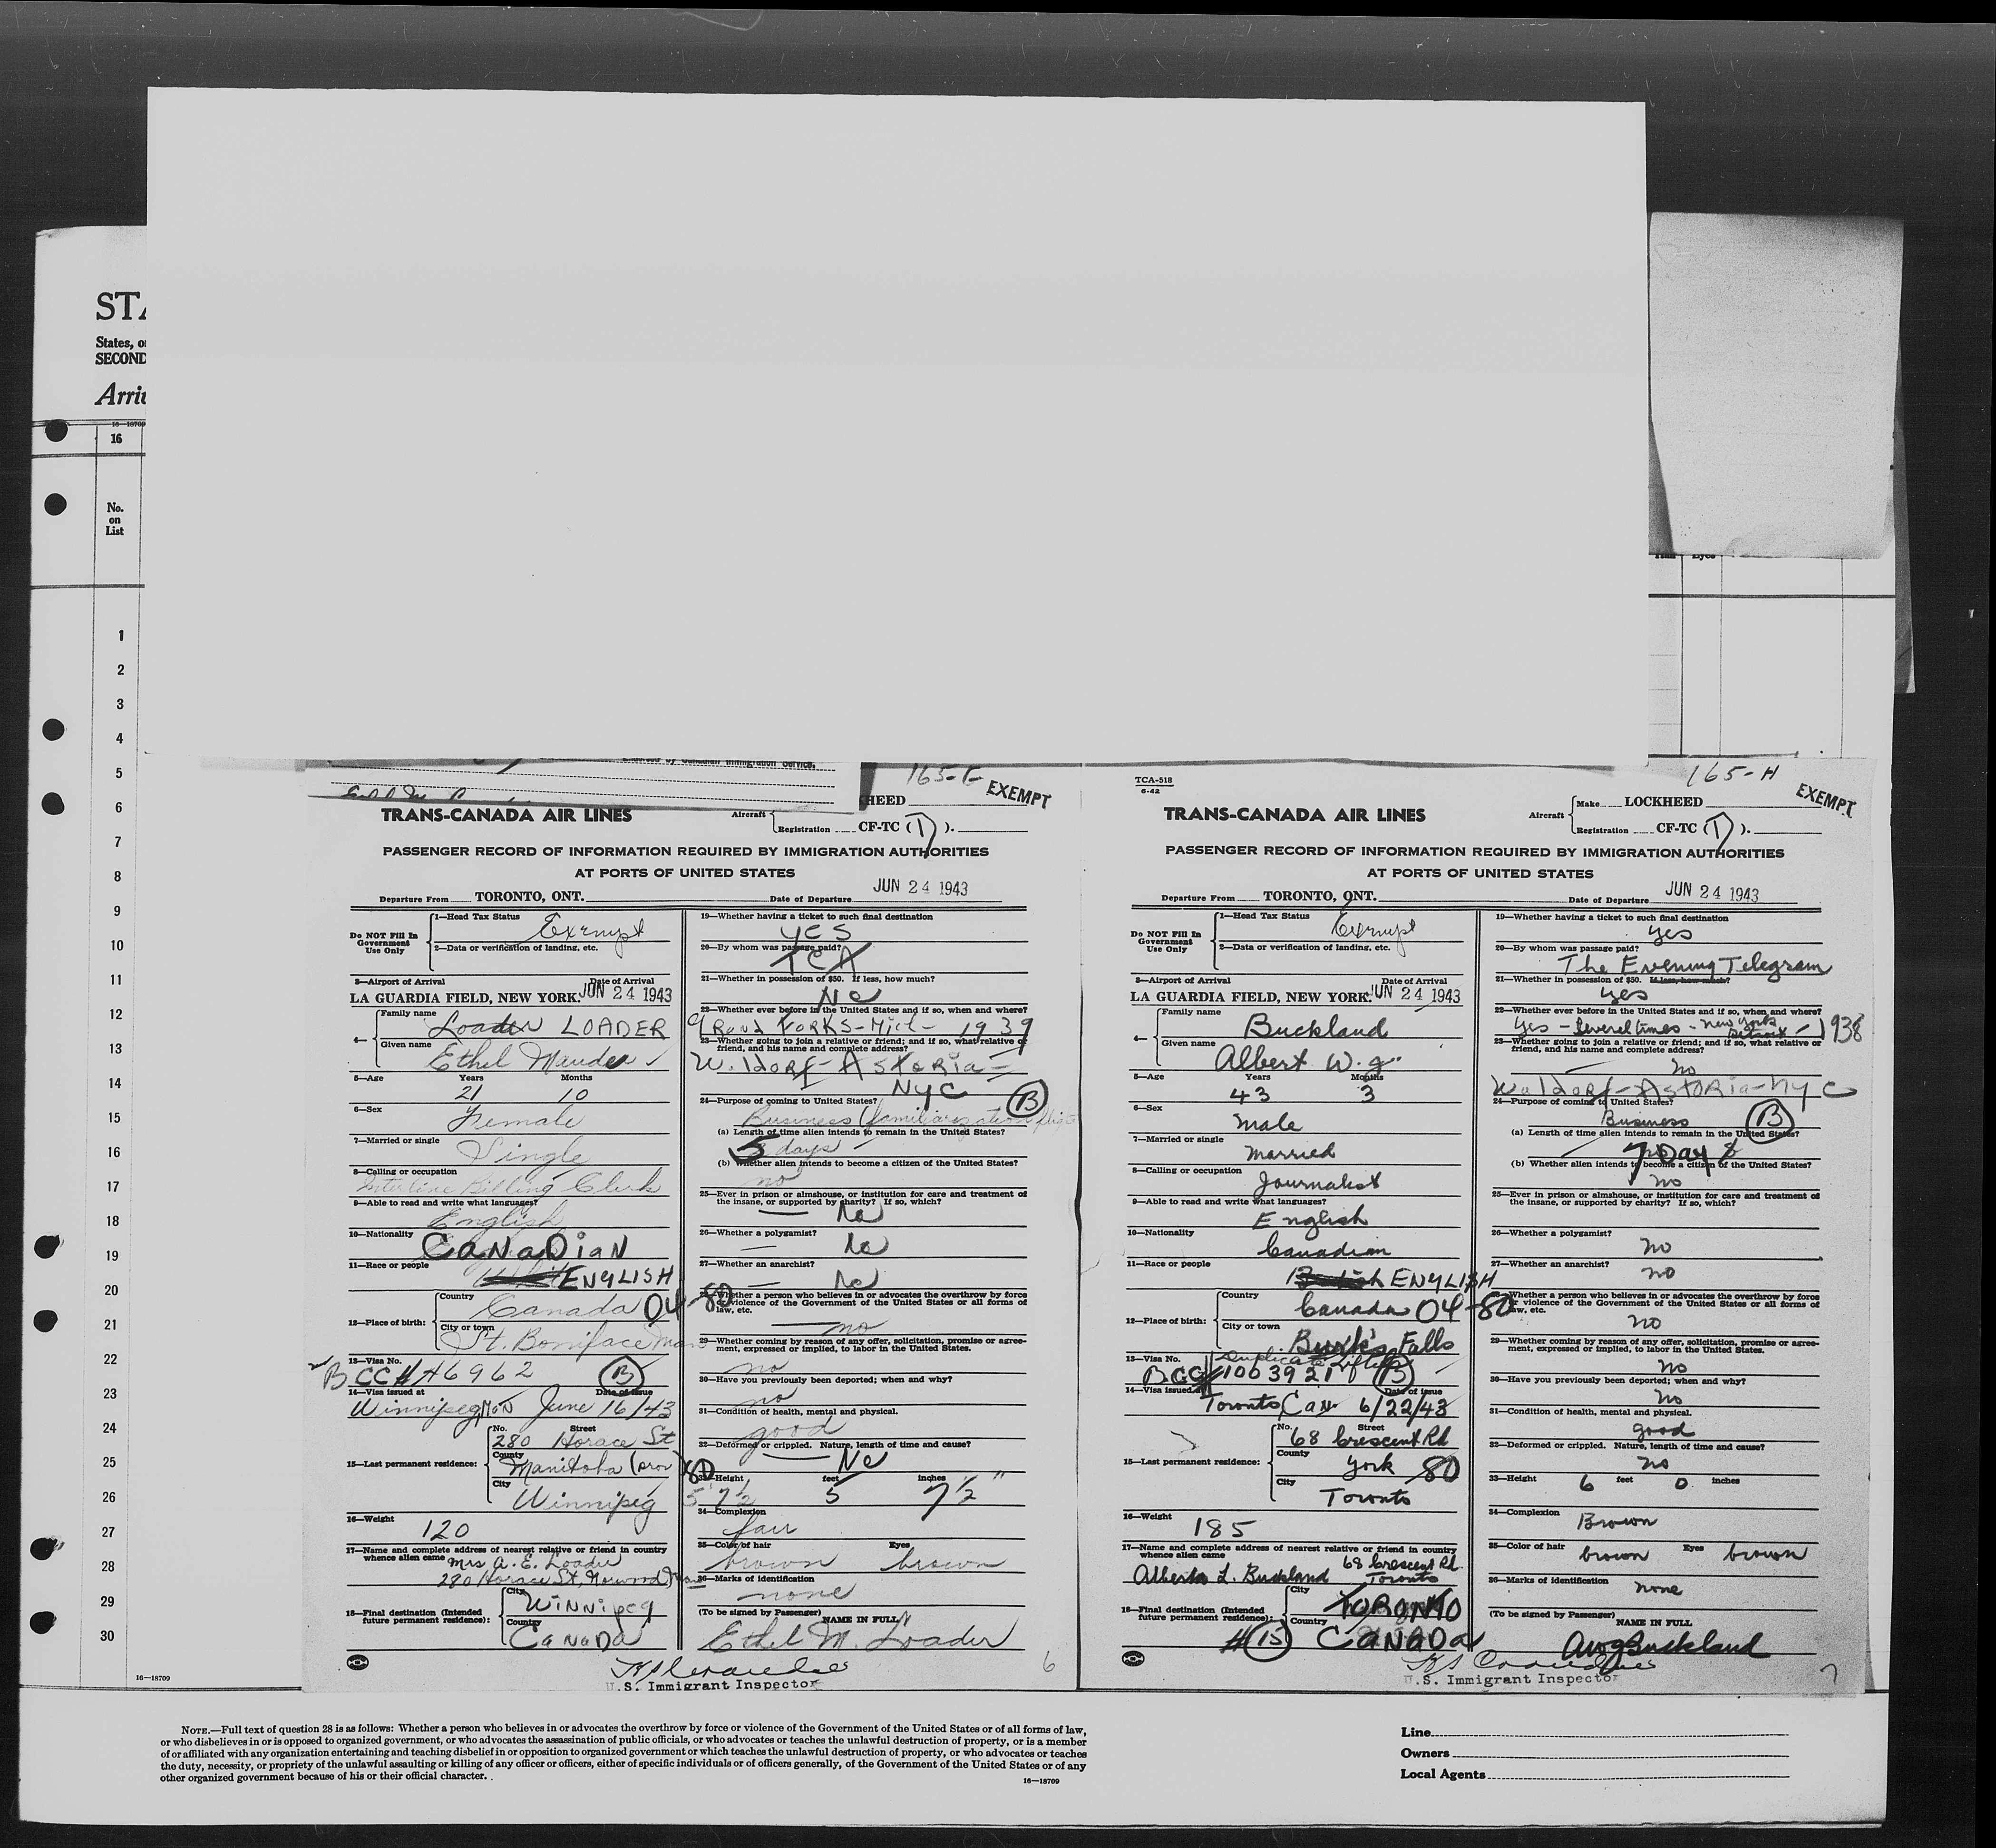 STA
States, o
SECOND
Arri
16—18709
16
No.
on
List
1
2
3
4
5
6
7
8
9
10
11
12
13
14
15
16
17
18
19
20
21
22
23
24
25
26
27
28
29
30
16—18709
Eyes
165-F
EXEMPT
HEED
TRANS-CANADA AIR LINES
Aircraft
Registration CF-TC (1).
PASSENGER RECORD OF INFORMATION REQUIRED BY IMMIGRATION AUTHORITIES
AT PORTS OF UNITED STATES
JUN 24 1943
Departure From TORONTO, ONT. Date of Departure
Do NOT Fill In Government Use Only
1—Head Tax Status Exempt
2—Data or verification of landing, etc.
3—Airport of Arrival Date of Arrival
LA GUARDIA FIELD, NEW YORK. JUN 24 1943
4— Family name Loader LOADER
Given name Ethel Maude
5—Age Years Months
21 10
6—Sex
Female
7—Married or single
Single
8—Calling or occupation
Interline Billing Clerk
9—Able to read and write what languages?
English
10—Nationality
CANADIAN
11—Race or people
ENGLISH
12—Place of birth: Country
Canada 04-80
City or town
St. Boniface Man
13—Visa No.
BCC# A6962 (B)
14—Visa issued at Date of issue
Winnipeg, Man June 16/43
15—Last permanent residence: No. Street
280 Horace St
County
Manitoba (prov) 80
City
Winnipeg
16—Weight
120
17—Name and complete address of nearest relative or friend in country
whence alien came Mrs A. E. Loader
280 Horace St, Norwood Man
18—Final destination (Intended future permanent residence): City
WINNIPEG
Country
CANADA
19—Whether having a ticket to such final destination
YES
20—By whom was passage paid?
TCA
21—Whether in possession of $50. If less, how much?
No
22—Whether ever before in the United States and if so, when and where?
Grand FORKS-Mich- 1939
23—Whether going to join a relative or friend; and if so, what relative or
friend, and his name and complete address?
Waldorf-Astoria-
NYC
24—Purpose of coming to United States? (B)
Business (familiarization flight
(a) Length of time alien intends to remain in the United States?
5 days
(b) Whether alien intends to become a citizen of the United States?
no
25—Ever in prison or almshouse, or institution for care and treatment of
the insane, or supported by charity? If so, which?
No
26—Whether a polygamist?
No
27—Whether an anarchist?
No
Whether a person who believes in or advocates the overthrow by force
or violence of the Government of the United States or all forms of
law, etc.
no
29—Whether coming by reason of any offer, solicitation, promise or agree-
ment, expressed or implied, to labor in the United States.
no
30—Have you previously been deported; when and why?
no
31—Condition of health, mental and physical.
good
32—Deformed or crippled. Nature, length of time and cause?
No
33—Height feet inches
5'7½ 5 7½"
34—Complexion
fair
35—Color of hair Eyes
brown brown
36—Marks of identification
none
(To be signed by Passenger) NAME IN FULL
Ethel M. Loader
U.S. Immigrant Inspector
6
TCA-518
6-42
165-H
EXEMPT
TRANS-CANADA AIR LINES
Aircraft Make LOCKHEED
Registration CF-TC (1).
PASSENGER RECORD OF INFORMATION REQUIRED BY IMMIGRATION AUTHORITIES
AT PORTS OF UNITED STATES
JUN 24 1943
Departure From TORONTO, ONT. Date of Departure
Do NOT Fill In Government Use Only
1—Head Tax Status Exempt
2—Data or verification of landing, etc.
3—Airport of Arrival Date of Arrival
LA GUARDIA FIELD, NEW YORK. JUN 24 1943
4— Family name Buckland
Given name Albert W. G.
5—Age Years Months
43 3
6—Sex
Male
7—Married or single
Married
8—Calling or occupation
Journalist
9—Able to read and write what languages?
English
10—Nationality
Canadian
11—Race or people
British ENGLISH
12—Place of birth: Country
Canada 04-80
City or town
Burk's Falls
13—Visa No. Duplicate
BCC# 1003921 (B)
14—Visa issued at Date of issue
Toronto, Can 6/22/43
15—Last permanent residence: No. Street
68 Crescent Rd
County
York 80
City
Toronto
16—Weight
185
17—Name and complete address of nearest relative or friend in country
whence alien came 68 Crescent Rd
Alberta L. Buckland Toronto
18—Final destination (Intended future permanent residence): City
TORONTO
Country
CANADA
#(15)
19—Whether having a ticket to such final destination
yes
20—By whom was passage paid?
The Evening Telegram
21—Whether in possession of $50. If less, how much?
yes
22—Whether ever before in the United States and if so, when and where?
Yes - Several times - New York Detroit - 1938
23—Whether going to join a relative or friend; and if so, what relative or
friend, and his name and complete address?
no
Waldorf-Astoria-NYC
24—Purpose of coming to United States?
Business (B)
(a) Length of time alien intends to remain in the United States?
7 Days
(b) Whether alien intends to become a citizen of the United States?
no
25—Ever in prison or almshouse, or institution for care and treatment of
the insane, or supported by charity? If so, which?
26—Whether a polygamist?
no
27—Whether an anarchist?
no
Whether a person who believes in or advocates the overthrow by force
or violence of the Government of the United States or all forms of
law, etc.
no
29—Whether coming by reason of any offer, solicitation, promise or agree-
ment, expressed or implied, to labor in the United States.
no
30—Have you previously been deported; when and why?
no
31—Condition of health, mental and physical.
good
32—Deformed or crippled. Nature, length of time and cause?
no
33—Height 6 feet 0 inches
34—Complexion
Brown
35—Color of hair Eyes
brown brown
36—Marks of identification
none
(To be signed by Passenger) NAME IN FULL
AWG Buckland
U.S. Immigrant Inspector
7
NOTE.—Full text of question 28 is as follows: Whether a person who believes in or advocates the overthrow by force or violence of the Government of the United States or of all forms of law,
or who disbelieves in or is opposed to organized government, or who advocates the assassination of public officials, or who advocates or teaches the unlawful destruction of property, or is a member
of or affiliated with any organization entertaining and teaching disbelief in or opposition to organized government or which teaches the unlawful destruction of property, or who advocates or teaches
the duty, necessity, or propriety of the unlawful assaulting or killing of any officer or officers, either of specific individuals or of officers generally, of the Government of the United States or of any
other organized government because of his or their official character.
16—18709
Line
Owners
Local Agents